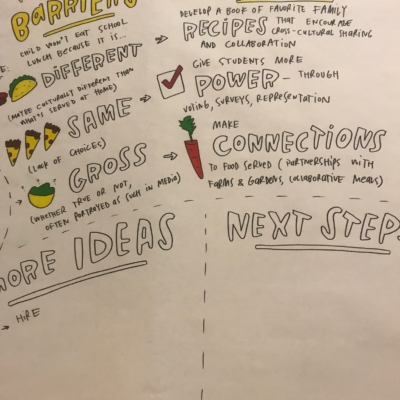 BARRIERS
CHILD WON'T EAT SCHOOL
LUNCH BECAUSE IT IS...
DIFFERENT
(MAYBE CULTURALLY DIFFERENT THAN
WHAT'S SERVED AT HOME)
SAME
(LACK OF CHOICES)
GROSS
(WHETHER TRUE OR NOT,
OFTEN PORTRAYED AS SUCH IN MEDIA)
DEVELOP A BOOK OF FAVORITE FAMILY
RECIPES THAT ENCOURAGE
CROSS-CULTURAL SHARING
AND COLLABORATION
GIVE STUDENTS MORE
POWER - THROUGH
VOTING, SURVEYS, REPRESENTATION
MAKE
CONNECTIONS
TO FOOD SERVED (PARTNERSHIPS WITH
FARMS & GARDENS, COLLABORATIVE MEALS)
MORE IDEAS
HIRE
NEXT STEPS